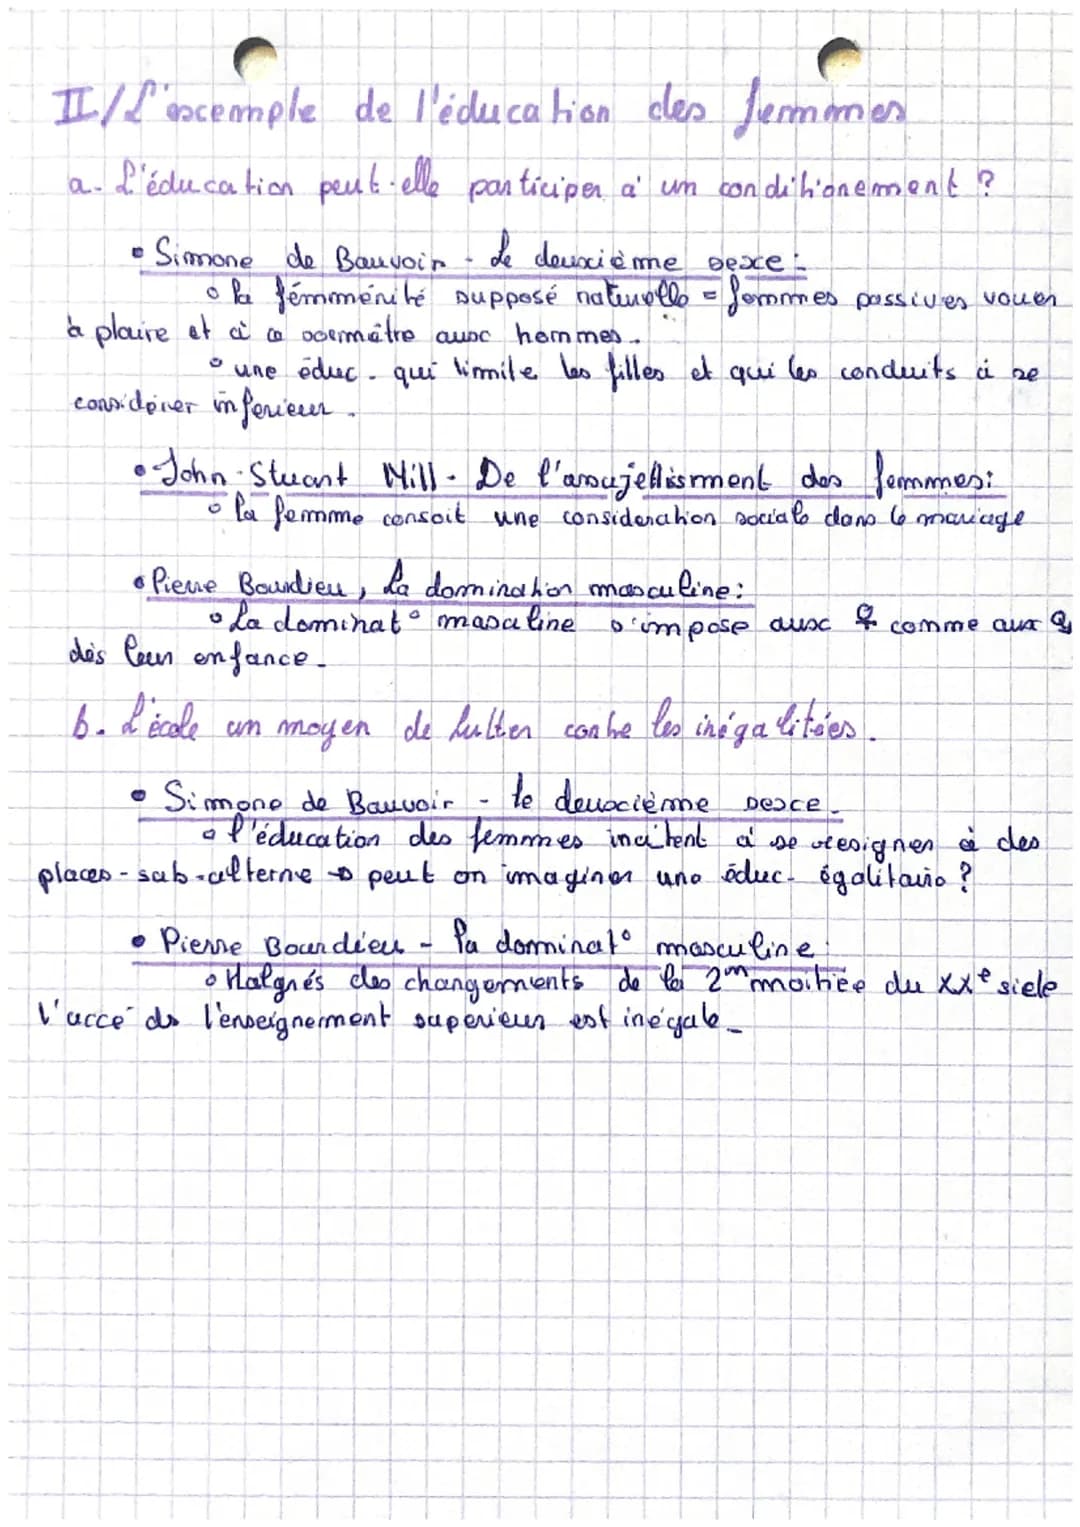 II/ L'exemple de l'éducation des femmes
a- L'éducation peut-elle participer à un conditionement ?
• Simone de Bauvoir - Le deuxième sexe :
○ la fémménité supposé naturelle = femmes passives vouer
à plaire et à se soumettre aux hommes.
○ une éduc. qui limite les filles et qui les conduits à se
considérer inferieur.
• John-Stuart Mill - De l'assujettisment des femmes :
○ la femme consoit une consideration sociale dans le mariage
• Pierre Bourdieu, La domination masculine :
○ La dominat° masculine s'impose aux ♀ comme aux
dès leur enfance.
b. L'école un moyen de lutter contre les inégalitées.
• Simone de Bauvoir - le deuxcième sexe.
○ l'éducation des femmes incitent à se resigner à des
places-sub-alterne → peut on imaginer une éduc. égalitaire ?
• Pierre Bourdieu - la dominat° masculine :
○ Malgrés des changements de la 2nd moitiée du XXe siele
l'accé de l'enseignement superieur est inégale.